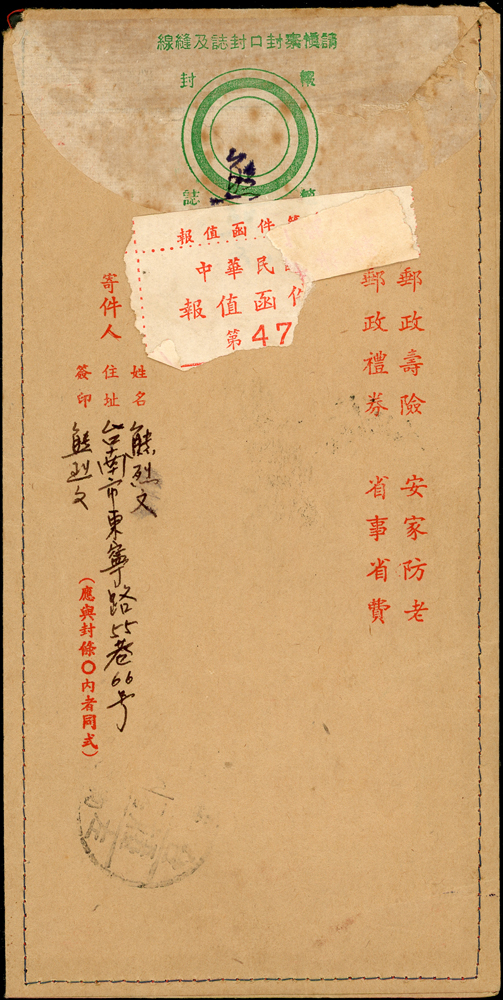 請慎察封口封誌及縫線
封
誌
熊
報值函件
中華民
報值函件
第47
郵政壽險 安家防老
郵政禮券 省事省費
寄件人
姓名 熊烈文
住址 台南市東寧路55巷66号
簽印 熊烈文
（應與封條〇內者同式）